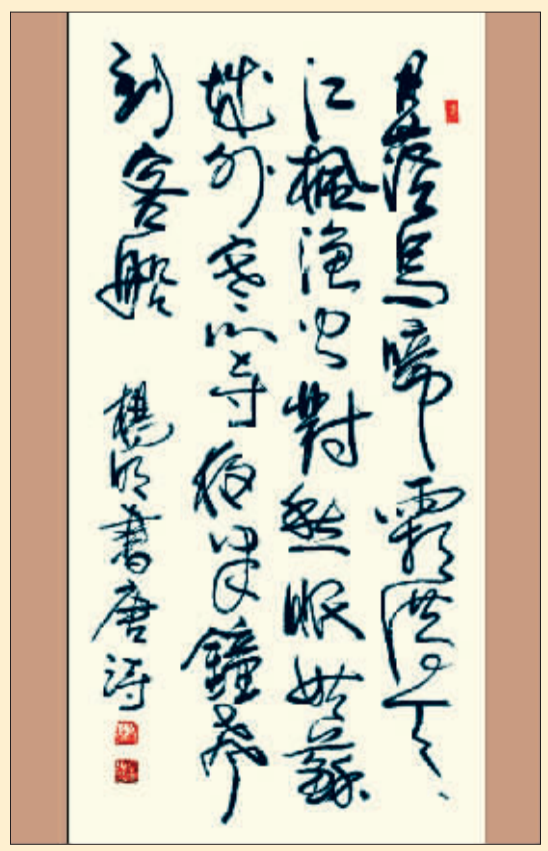 月落烏啼霜滿天
江楓漁火對愁眠姑蘇
城外寒山寺夜半鐘聲
到客船 楊書唐詩